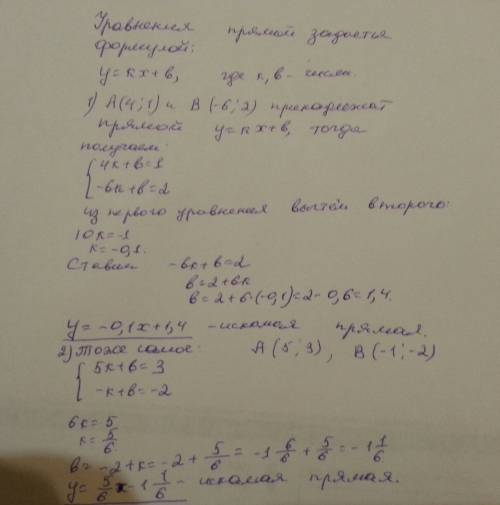 Уравнения прямой задаётся
формулой:
y = kx + b, где k, b - числа.
1) A(4; 1) и B(-6; 2) принадлежат
прямой y = kx + b, тогда
получаем:
4k + b = 1
-6k + b = 2
из первого уравнения вычтем второго:
10k = -1
k = -0,1.
Ставим -6k + b = 2
b = 2 + 6k
b = 2 + 6·(-0,1) = 2 - 0,6 = 1,4.
y = -0,1x + 1,4 - искомая прямая.
2) Тоже самое: A(5; 3), B(-1; -2)
5k + b = 3
-k + b = -2
6k = 5
k = 5/6
b = -2 + k = -2 + 5/6 = -1 6/6 + 5/6 = -1 1/6
y = 5/6 x - 1 1/6 - искомая прямая.